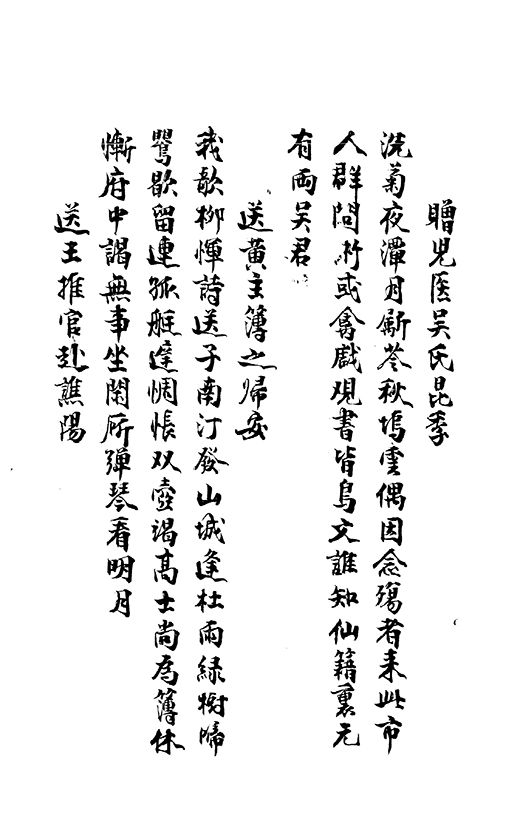 贈児医吴氏昆季
洗菊夜潭月斸苓秋塢雲偶因念殤者来此市
人群問術或禽戲观書皆鳥文誰知仙籍裏元
有両吴君
送黄主簿之归安
我歌柳惲詩送子南汀發山城逢杜雨緑樹啼
鶯歇留連孤艇遲惆悵双壺竭高士尚爲簿休
慚府中謁無事坐閑厛弹琴看明月
送王推官赴譙陽